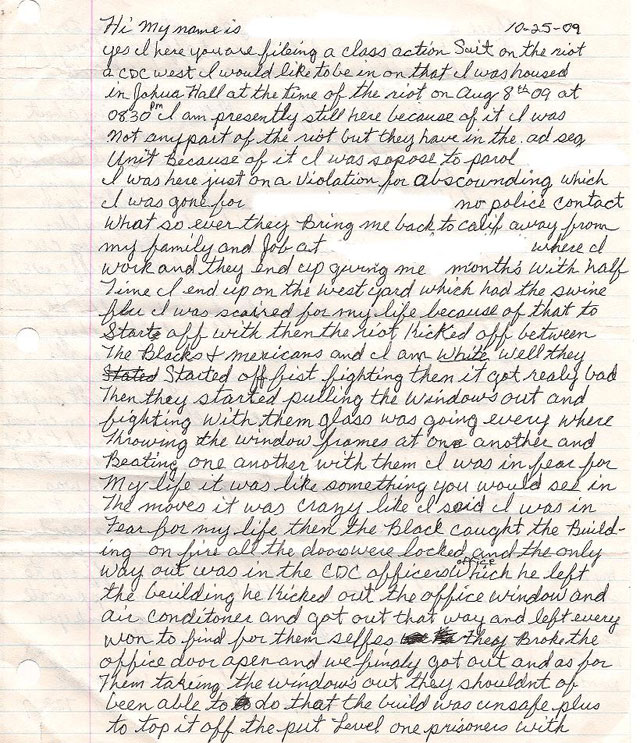 Hi My name is 10-25-09
yes I here you are fileing a class action Suit on the riot
a CDC west I would like to be in on that I was housed
in Johua Hall at the time of the riot on Aug 8th 09 at
0830 pm I am presently still here because of it I was
Not any part of the riot but they have in the ad seg
Unit Because of it I was sopose to parol
I was here just on a Violation for abscounding which
I was gone for no police contact
What so ever they Bring me back to calif away from
my family and Job at where I
work and they end up giveing me months with half
Time I end up on the west yard which had the swine
flu I was scaired for my life because of that to
Starte off with then the riot Kicked off between
The Blacks & mexicans and I am White Well they
Stated Started off fist fighting then it got realy bad
Then they started pulling the windows out and
fighting with them glass was going every where
Throwing the window frames at one another and
Beating one another with them I was in fear for
My life it was like something you would see in
The moves it was crazy like I said I was in
Fear for my life then the Black caught the Build-
ing on fire all the doors were locked and the only
way out was in the CDC officers office which he left
the beuilding he Kicked out the office window and
air conditoner and got out that way and left every
won to find for them selfes they Broke the
office door apen and we finaly got out and as for
Them takeing the windows out they shouldnt of
been able to do that the build was unsafe plus
to top it off the put Level one prisoners with